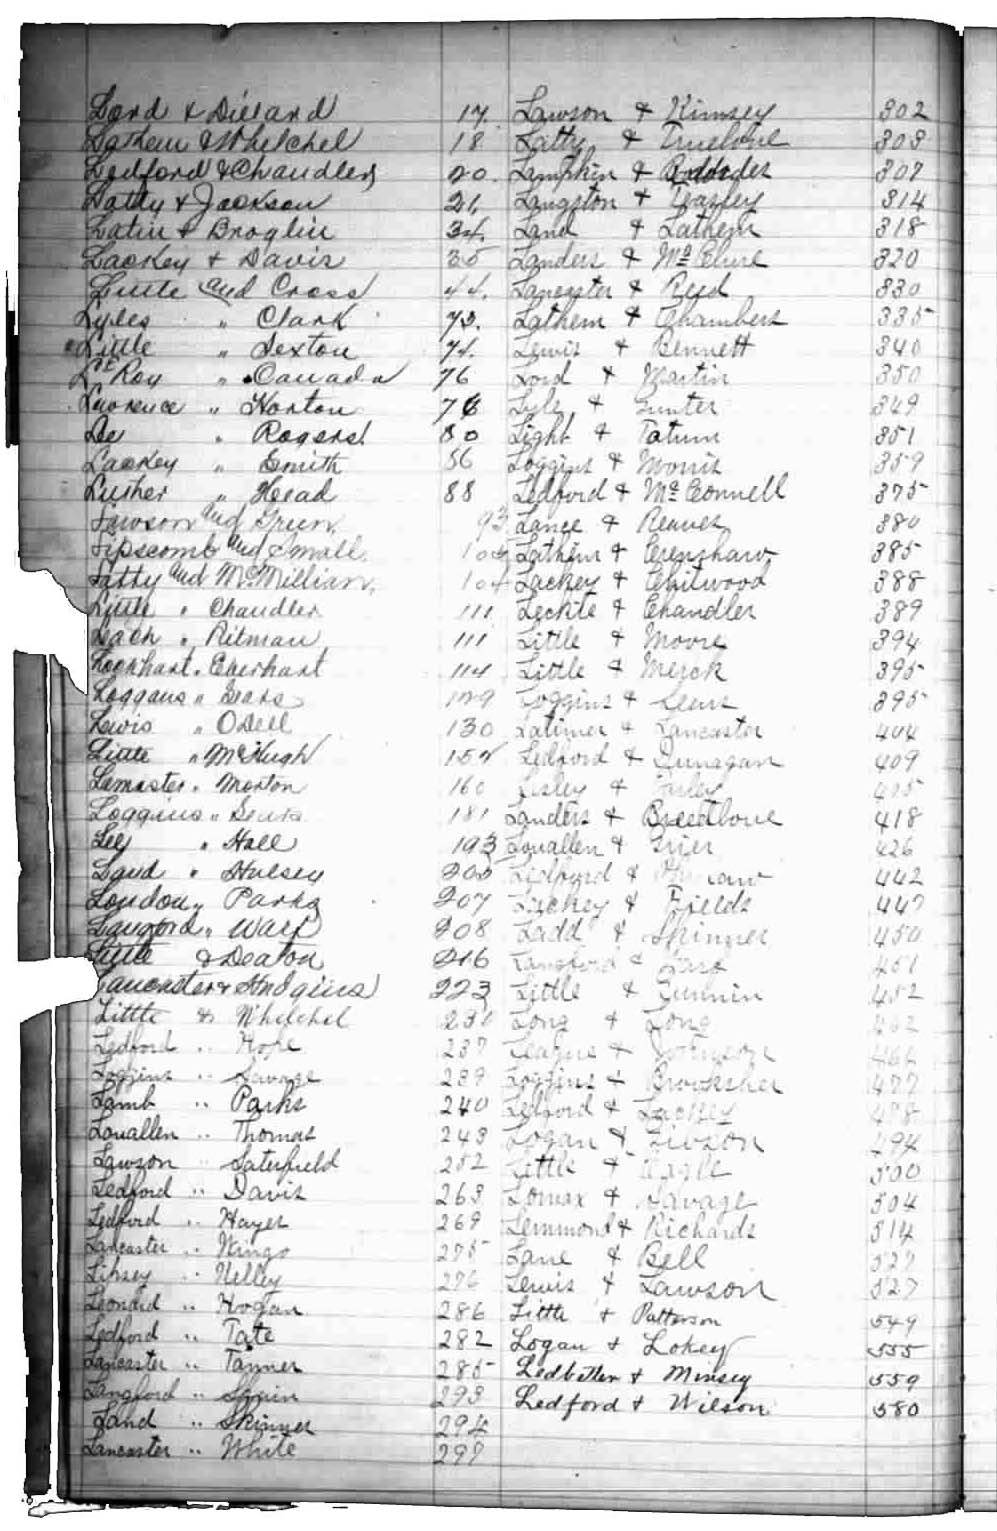 Land & Dillard 17
Lathem & Whelchel 18
Ledford & Chandler 20
Latty & Jackson 21
Latin & Braglin 34
Lackey & Davis 35
Little and Cross 44
Lyles " Clark 73
Little " Sexton 74
LeRoy " Canada 76
Lawrence " Horton 78
Lee " Rogers 80
Lackey " Smith 86
Lusher " Head 88
Lawson and Green 93
Lipscomb and Small
Latty and McMillian 104
Little " Chandler 111
Lach " Pitman 111
Lockhart " Eberhart 114
Loggans " Sears 129
Lewis " Odell 130
" McHugh
Lemaster " Morton 160
Loggins " Sears 181
Lee " Hall 193
Land " Hulsey 205
London " Parks 207
Langford " Ward 208
Little & Deaton 216
Lancaster & Hudgins 223
Little & Whelchel 230
Ledford " Pope 237
Loggins " Savage 239
Lamb " Parks 240
Louallen " Thomas 243
Lawson " Saterfield 252
Ledford " Davis 263
Ledford " Hayes 269
Lancaster " Wingo 275
Lipsey " Kelley 276
Leonard " Hogan 286
Ledford " Tate 282
Lancaster " Tanner 285
Langford " Spain 293
Land " Skinner 294
Lancaster " White 299
Lawson & Kimsey 302
Latty & Truelove 303
Lampkin & 307
Langston & Beasley 314
Land & Lathem 318
Landers & McClure 320
Lancaster & Reed 330
Lathem & Chambers 335
Lewis & Bennett 340
Lord & Martin 350
Lyle & Gunter 349
Light & Tatum 351
Loggins & Morris 359
Ledford & McConnell 375
Lance & Reaves 380
Lathem & Crenshaw 385
Lackey & Chitwood 388
Leckie & Chandler 389
Little & Moore 394
Little & Merck 395
Loggins & Sears 395
Latimer & Lancaster 404
Ledford & Dunagan 409
Lesley & Farley 415
Landers & Breedlove 418
Louallen & Grier 426
Ledford & 442
Lackey & Fields 447
Ladd & Skinner 450
Langford & 451
Little & Gunnin 452
Long & Long 462
League & Johnson 466
Loggins & Brooksher 477
Ledford & Lackey 478
Logan & Gibson 494
Little & Cagle 500
Lomax & Savage 504
Lemmond & Richards 514
Lane & Bell 527
Lewis & Lawson 527
Little & Patterson 549
Logan & Lokey 555
Ledbetter & Minsey 559
Ledford & Wilson 580